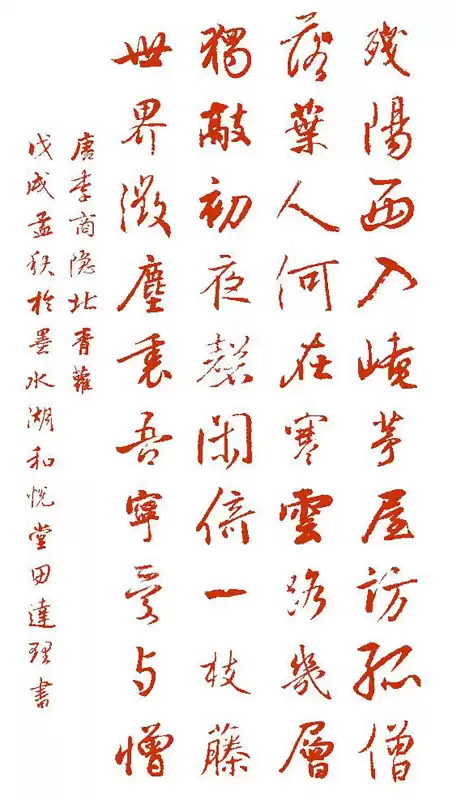 殘陽西入崦茅屋訪孤僧
落葉人何在寒雲路幾層
獨敲初夜磬閑倚一枝藤
世界微塵裏吾寧愛与憎
唐李商隐北青蘿
戊戌孟秋於墨水湖和悅堂田達理書